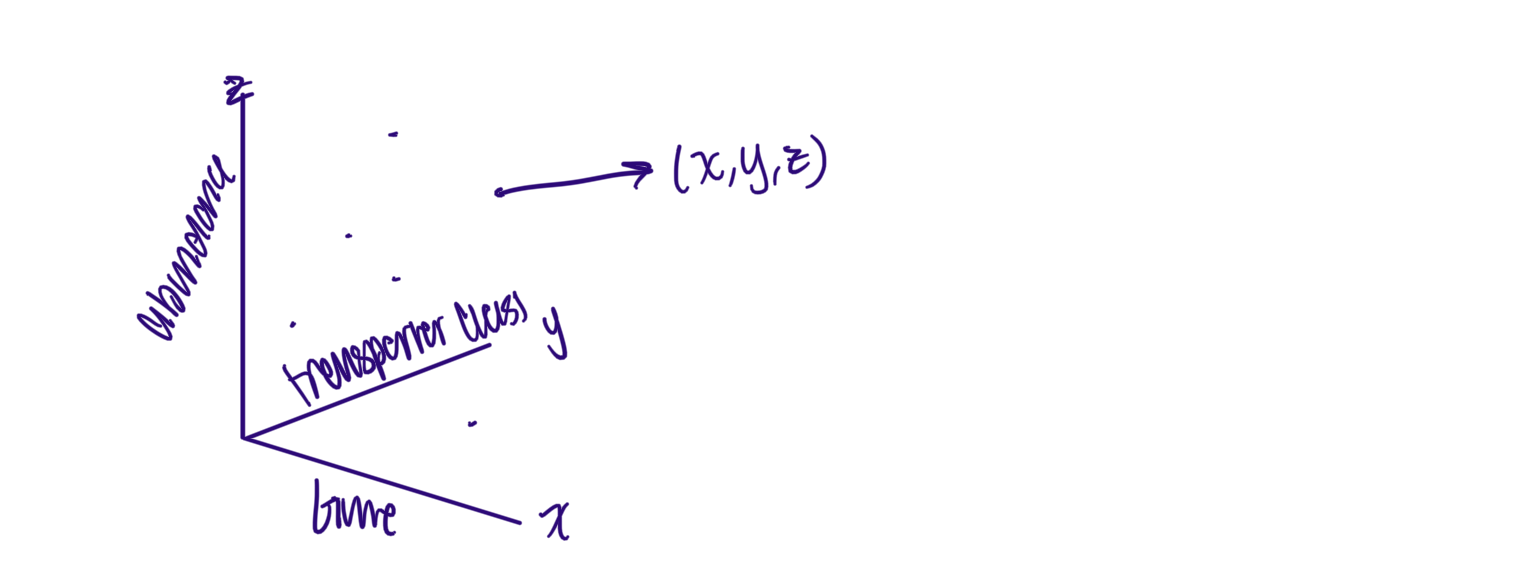 z
abundance
(x,y,z)
transporter class
y
time
x